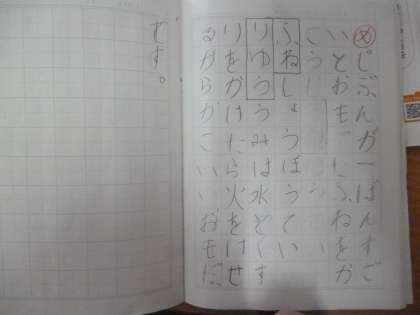 め じぶんが一ばんすご
いとおもったふねをか
ふねしょうぼうてい
りゆううみは水とくす
りをかけたら火をけせ
るからかこいいおもだ
す。